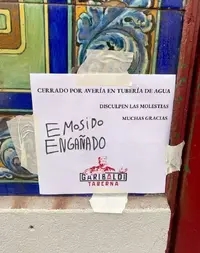 CERRADO POR AVERÍA EN TUBERÍA DE AGUA
DISCULPEN LAS MOLESTIAS
MUCHAS GRACIAS
EMOSIDO
ENGAÑADO
GARIBALDI
TABERNA